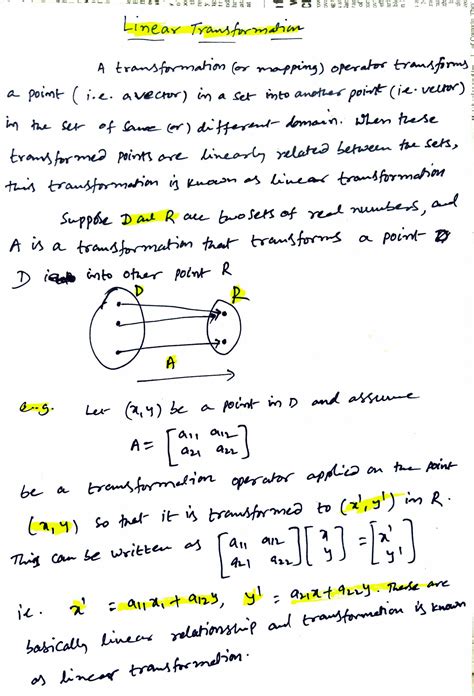 Linear Transformation
A transformation (or mapping) operator transforms
a point (i.e. a vector) in a set into another point (i.e. vector)
in the set of same (or) different domain. When these
transformed points are linearly related between the sets,
this transformation is known as linear transformation
Suppose D and R are two sets of real numbers, and
A is a transformation that transforms a point
D into other point R
D R
A
e.g. Let (x,y) be a point in D and assume
A = [a11 a12
a21 a22]
be a transformation operator applied on the point
(x,y) so that it is transformed to (x',y') in R.
This can be written as [a11 a12 [x = [x'
a21 a22] y] y']
i.e. x' = a11x1 + a12y, y' = a21x + a22y. These are
basically linear relationship and transformation is known
as linear transformation.